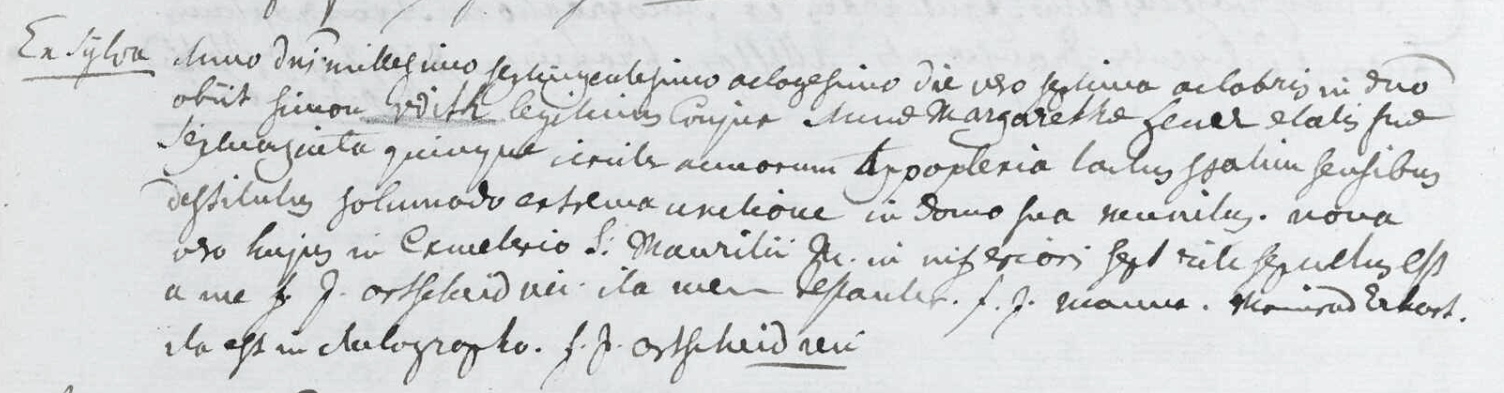 Ex Sylva
Anno dni millesimo septingentesimo octogesimo die vero septima octobris in dno
obiit simon legitimus Conjux Annæ Margarethæ etatis suæ
septuaginta quinque circiter annorum appoplexia tactus statim sensibus
destitutus solummodo extrema unctione in domo sua munitus. nona
vero hujus in Cæmeterio S. Mauritii M. in inferiori sept rite sepultus est
a me f. J. ortscheid ita mecum testantur. f. J. Mainrad Erhart.
ita est in Autographo. f. J. ortscheid